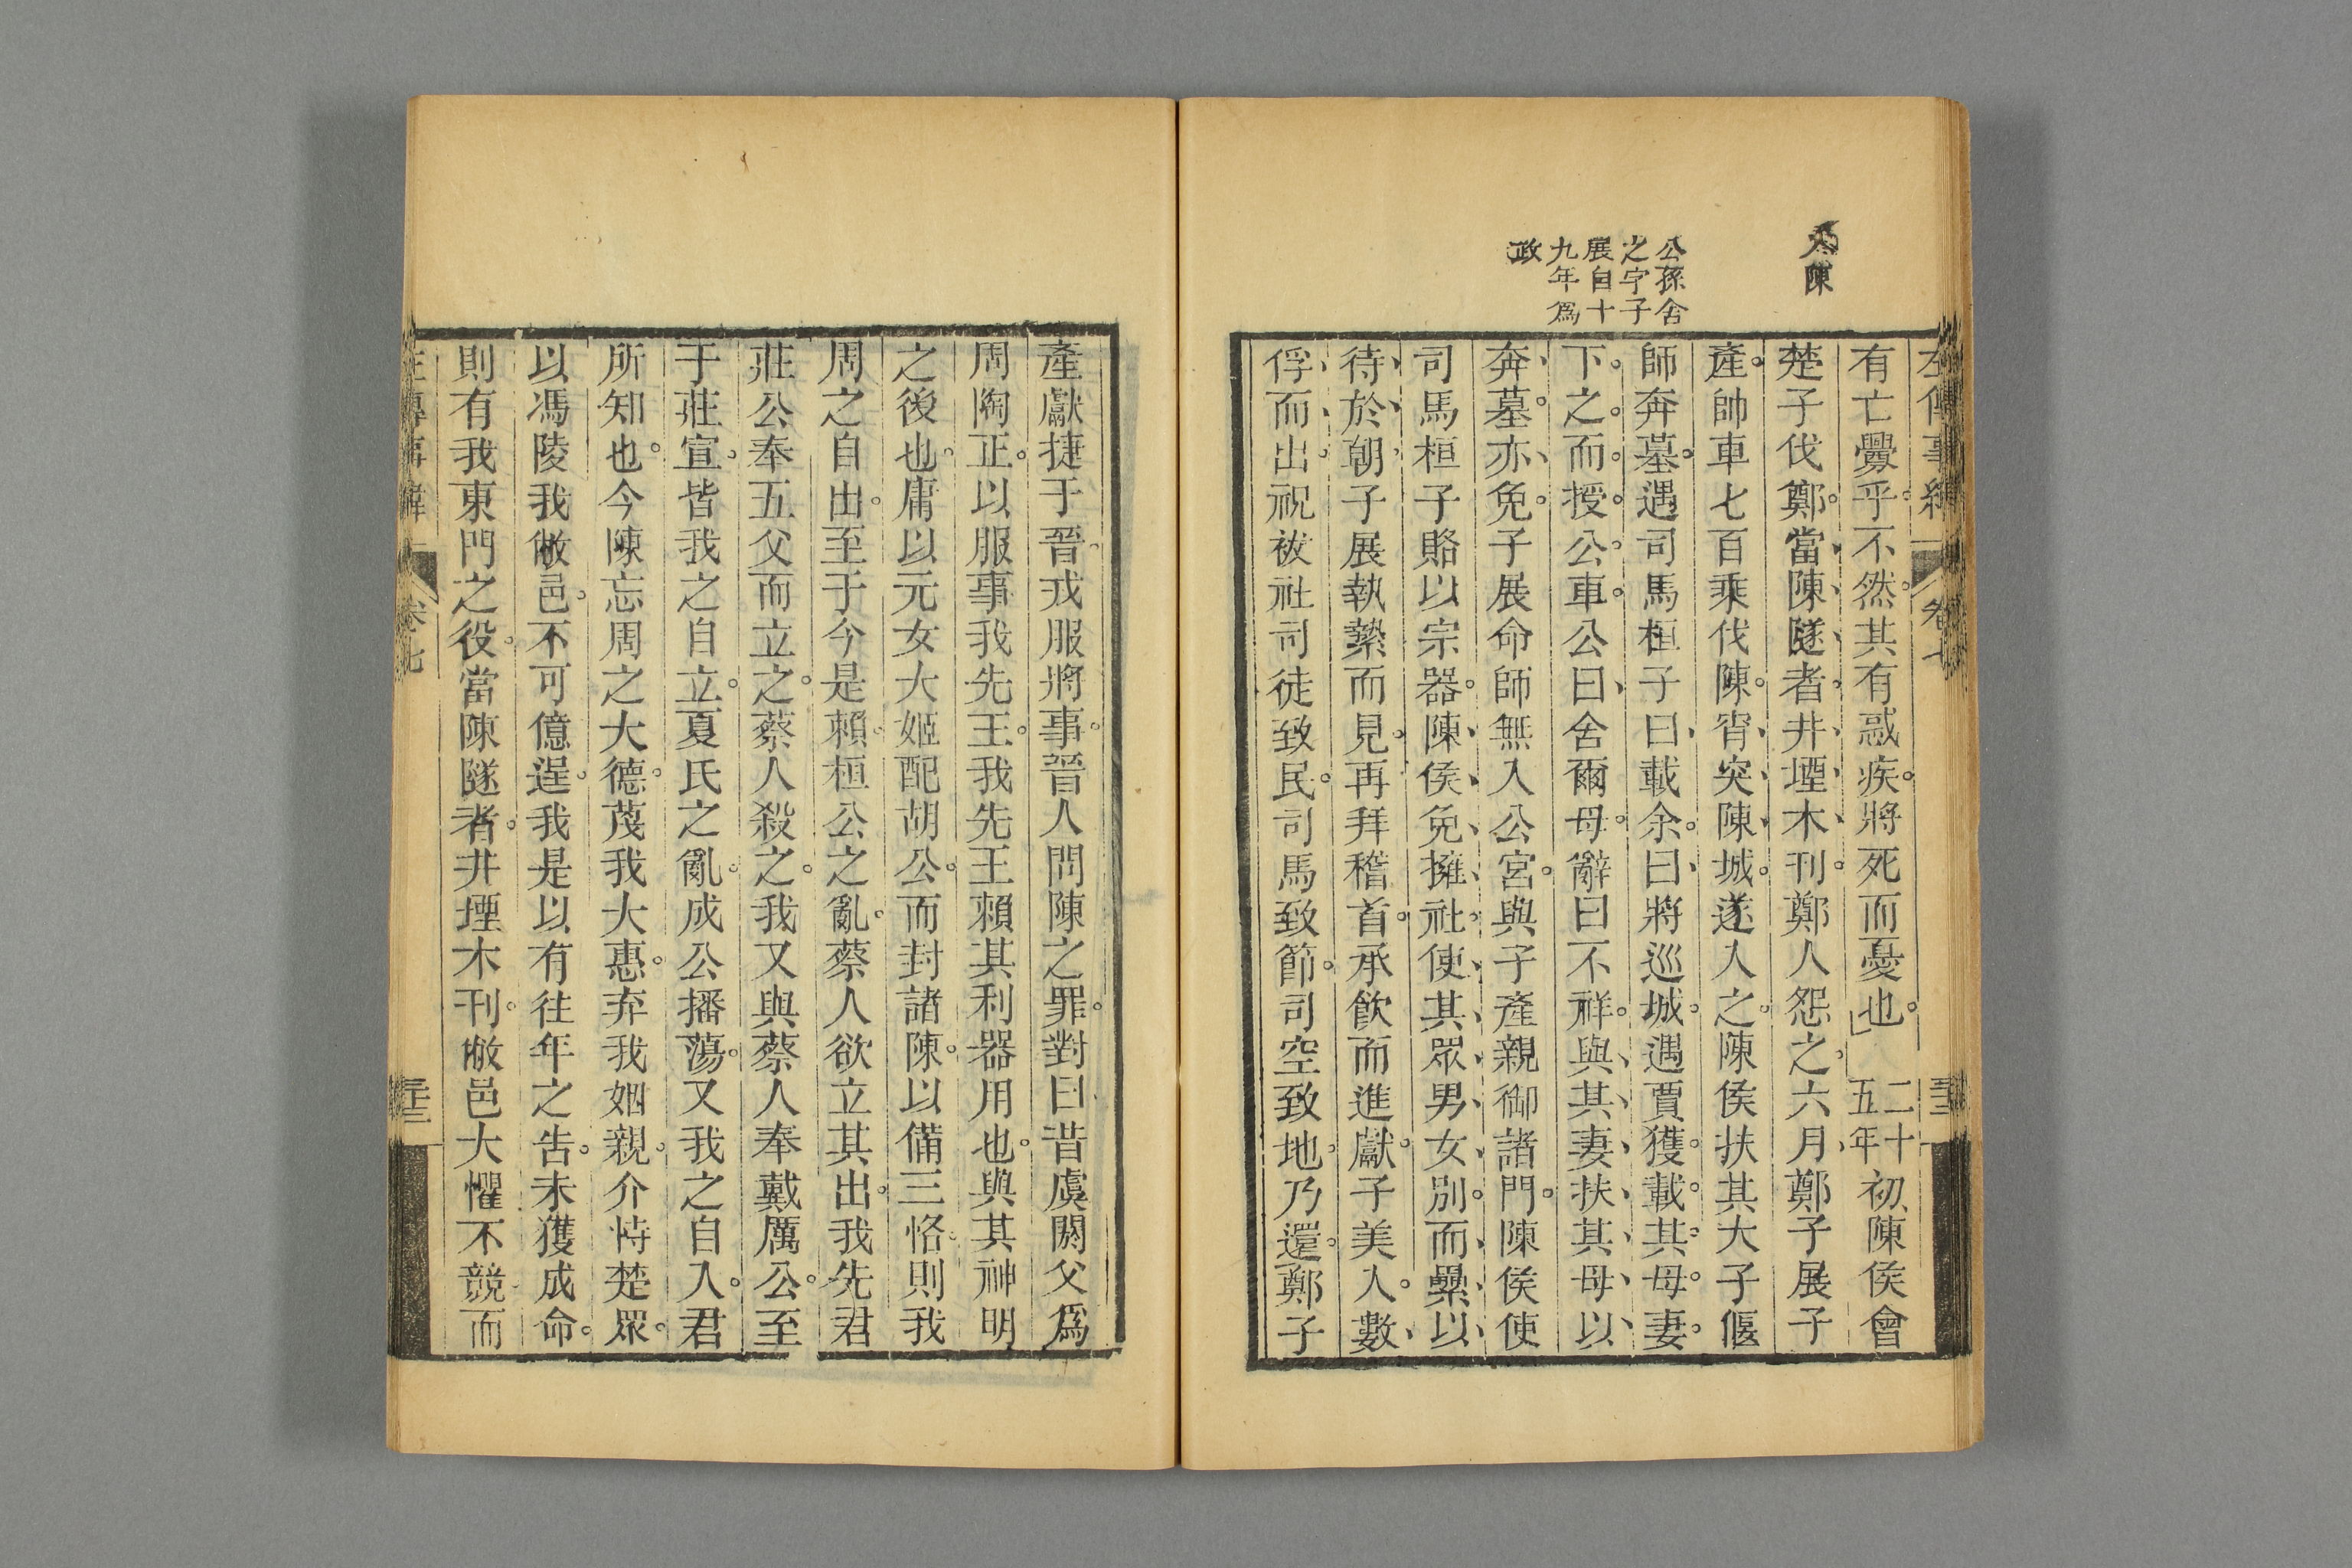 左傳事緯
卷七
入陳
公孫舍
之字子
展自十
九年爲
政
有亡釁乎不然其有惑疾將死而憂也 二十五年 初陳侯會
楚子伐鄭當陳隧者井堙木刊鄭人怨之六月鄭子展子
產帥車七百乘伐陳宵突陳城遂入之陳侯扶其大子偃
師奔墓遇司馬桓子曰載余曰將巡城遇賈獲載其母妻
下之而授公車公曰舍爾母辭曰不祥與其妻扶其母以
奔墓亦免子展命師無入公宮與子產親御諸門陳侯使
司馬桓子賂以宗器陳侯免擁社使其眾男女別而纍以
待於朝子展執縶而見再拜稽首承飲而進獻子美人數
俘而出祝祓社司徒致民司馬致節司空致地乃還鄭子
產獻捷于晉戎服將事晉人問陳之罪對曰昔虞閼父爲
周陶正以服事我先王我先王賴其利器用也與其神明
之後也庸以元女大姬配胡公而封諸陳以備三恪則我
周之自出至于今是賴桓公之亂蔡人欲立其出我先君
莊公奉五父而立之蔡人殺之我又與蔡人奉戴厲公至
于莊宣皆我之自立夏氏之亂成公播蕩又我之自入君
所知也今陳忘周之大德蔑我大惠弃我姻親介恃楚眾
以馮陵我敝邑不可億逞我是以有往年之告未獲成命
則有我東門之役當陳隧者井堙木刊敝邑大懼不競而
左傳事緯
卷七